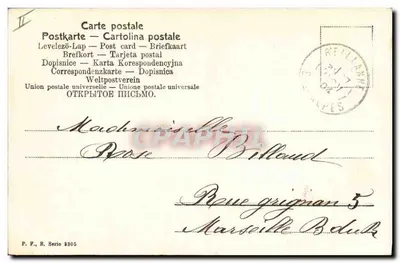 II
Carte postale
Postkarte — Cartolina postale
Levelező-Lap — Post card — Briefkaart
Brefkort — Tarjeta postal
Dopisnice — Karta Korespondencyjna
Correspondenzkarte — Dopisnica
Weltpostverein
Union postale universelle — Unione postale universale
ОТКРЫТОЕ ПИСЬМО.
REILLANNE
04
ALPES
Mademoiselle
Rose Billaud
Rue grignan 5
Marseille B du R
P. F., B. Serie